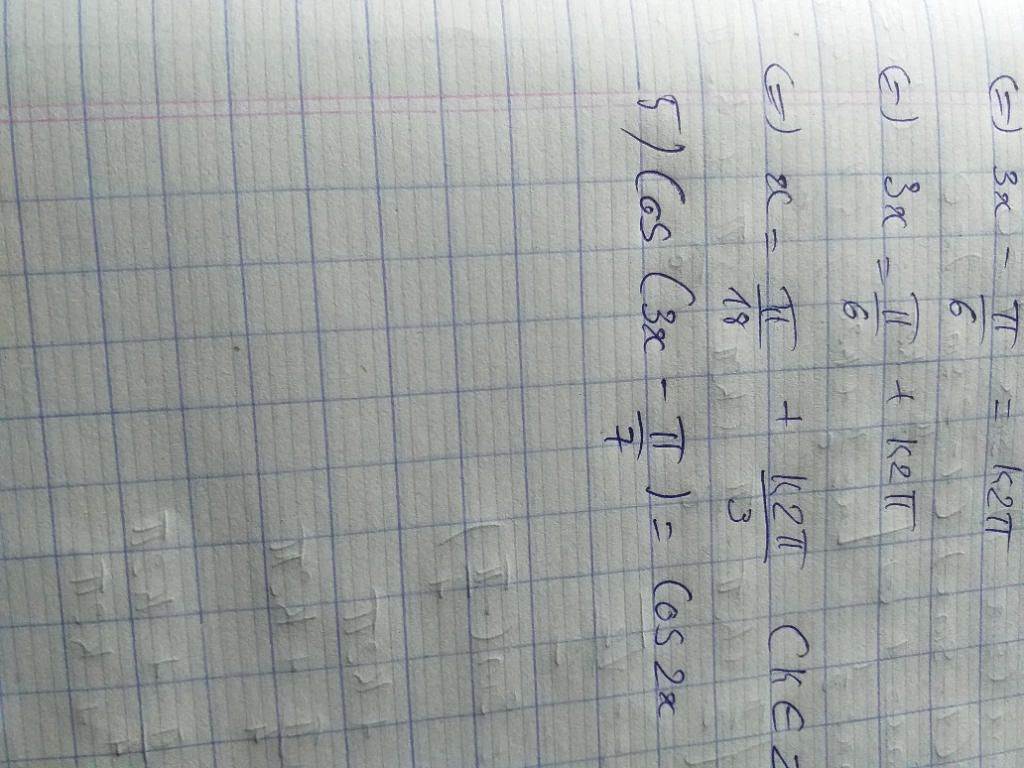 (=) 3x - π/6 = k2π
(=) 3x = π/6 + k2π
(=) x = π/18 + k2π/3 (k ∈ Z
5) Cos (3x - π/7) = Cos 2x